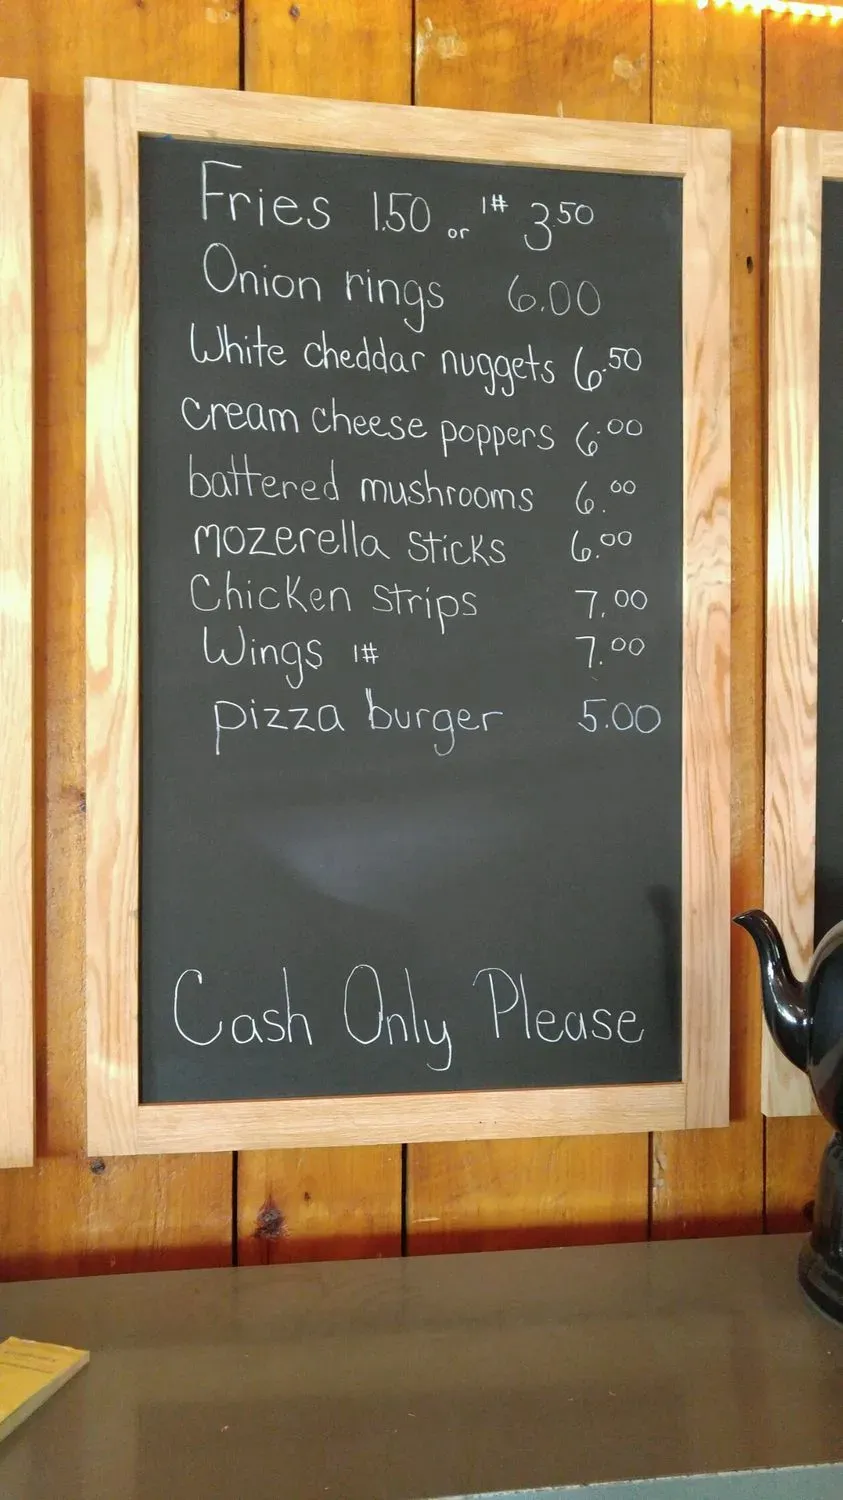 Fries 1.50 or 1# 3.50
Onion rings 6.00
White cheddar nuggets 6.50
cream cheese poppers 6.00
battered mushrooms 6.00
mozerella sticks 6.00
Chicken strips 7.00
Wings 1# 7.00
pizza burger 5.00
Cash Only Please